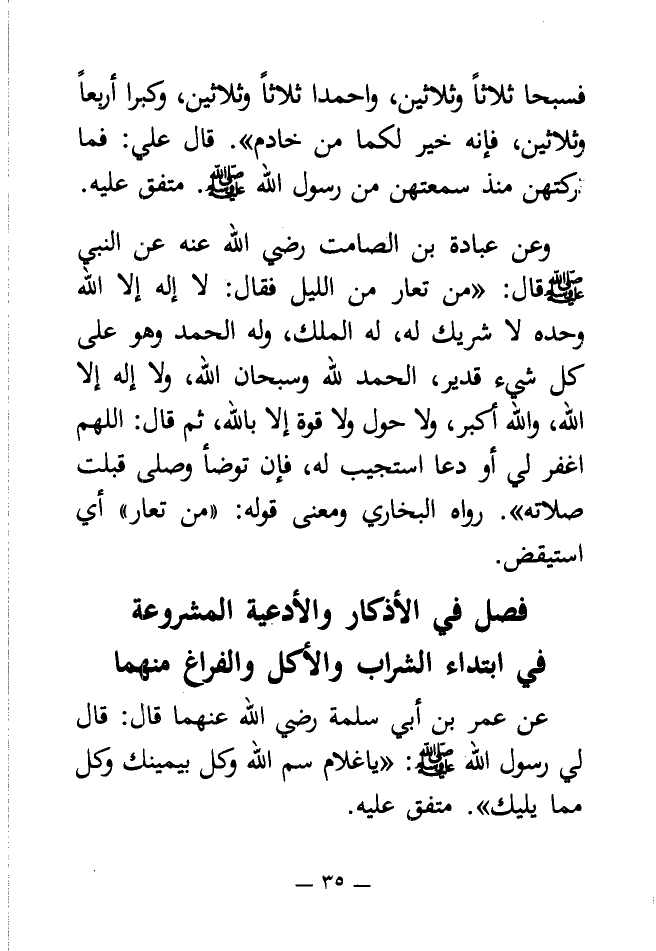 فسبحا ثلاثاً وثلاثين، واحمدا ثلاثاً وثلاثين، وكبرا أربعاً
وثلاثين، فإنه خير لكما من خادم». قال علي: فما
تركتهن منذ سمعتهن من رسول الله ﷺ. متفق عليه.
وعن عبادة بن الصامت رضي الله عنه عن النبي
ﷺ قال: «من تعار من الليل فقال: لا إله إلا الله
وحده لا شريك له، له الملك، وله الحمد وهو على
كل شيء قدير، الحمد لله وسبحان الله، ولا إله إلا
الله، والله أكبر، ولا حول ولا قوة إلا بالله، ثم قال: اللهم
اغفر لي أو دعا استجيب له، فإن توضأ وصلى قبلت
صلاته». رواه البخاري ومعنى قوله: «من تعار» أي
استيقض.
فصل في الأذكار والأدعية المشروعة
في ابتداء الشراب والأكل والفراغ منهما
عن عمر بن أبي سلمة رضي الله عنهما قال: قال
لي رسول الله ﷺ: «ياغلام سم الله وكل بيمينك وكل
مما يليك». متفق عليه.
— ٣٥ —